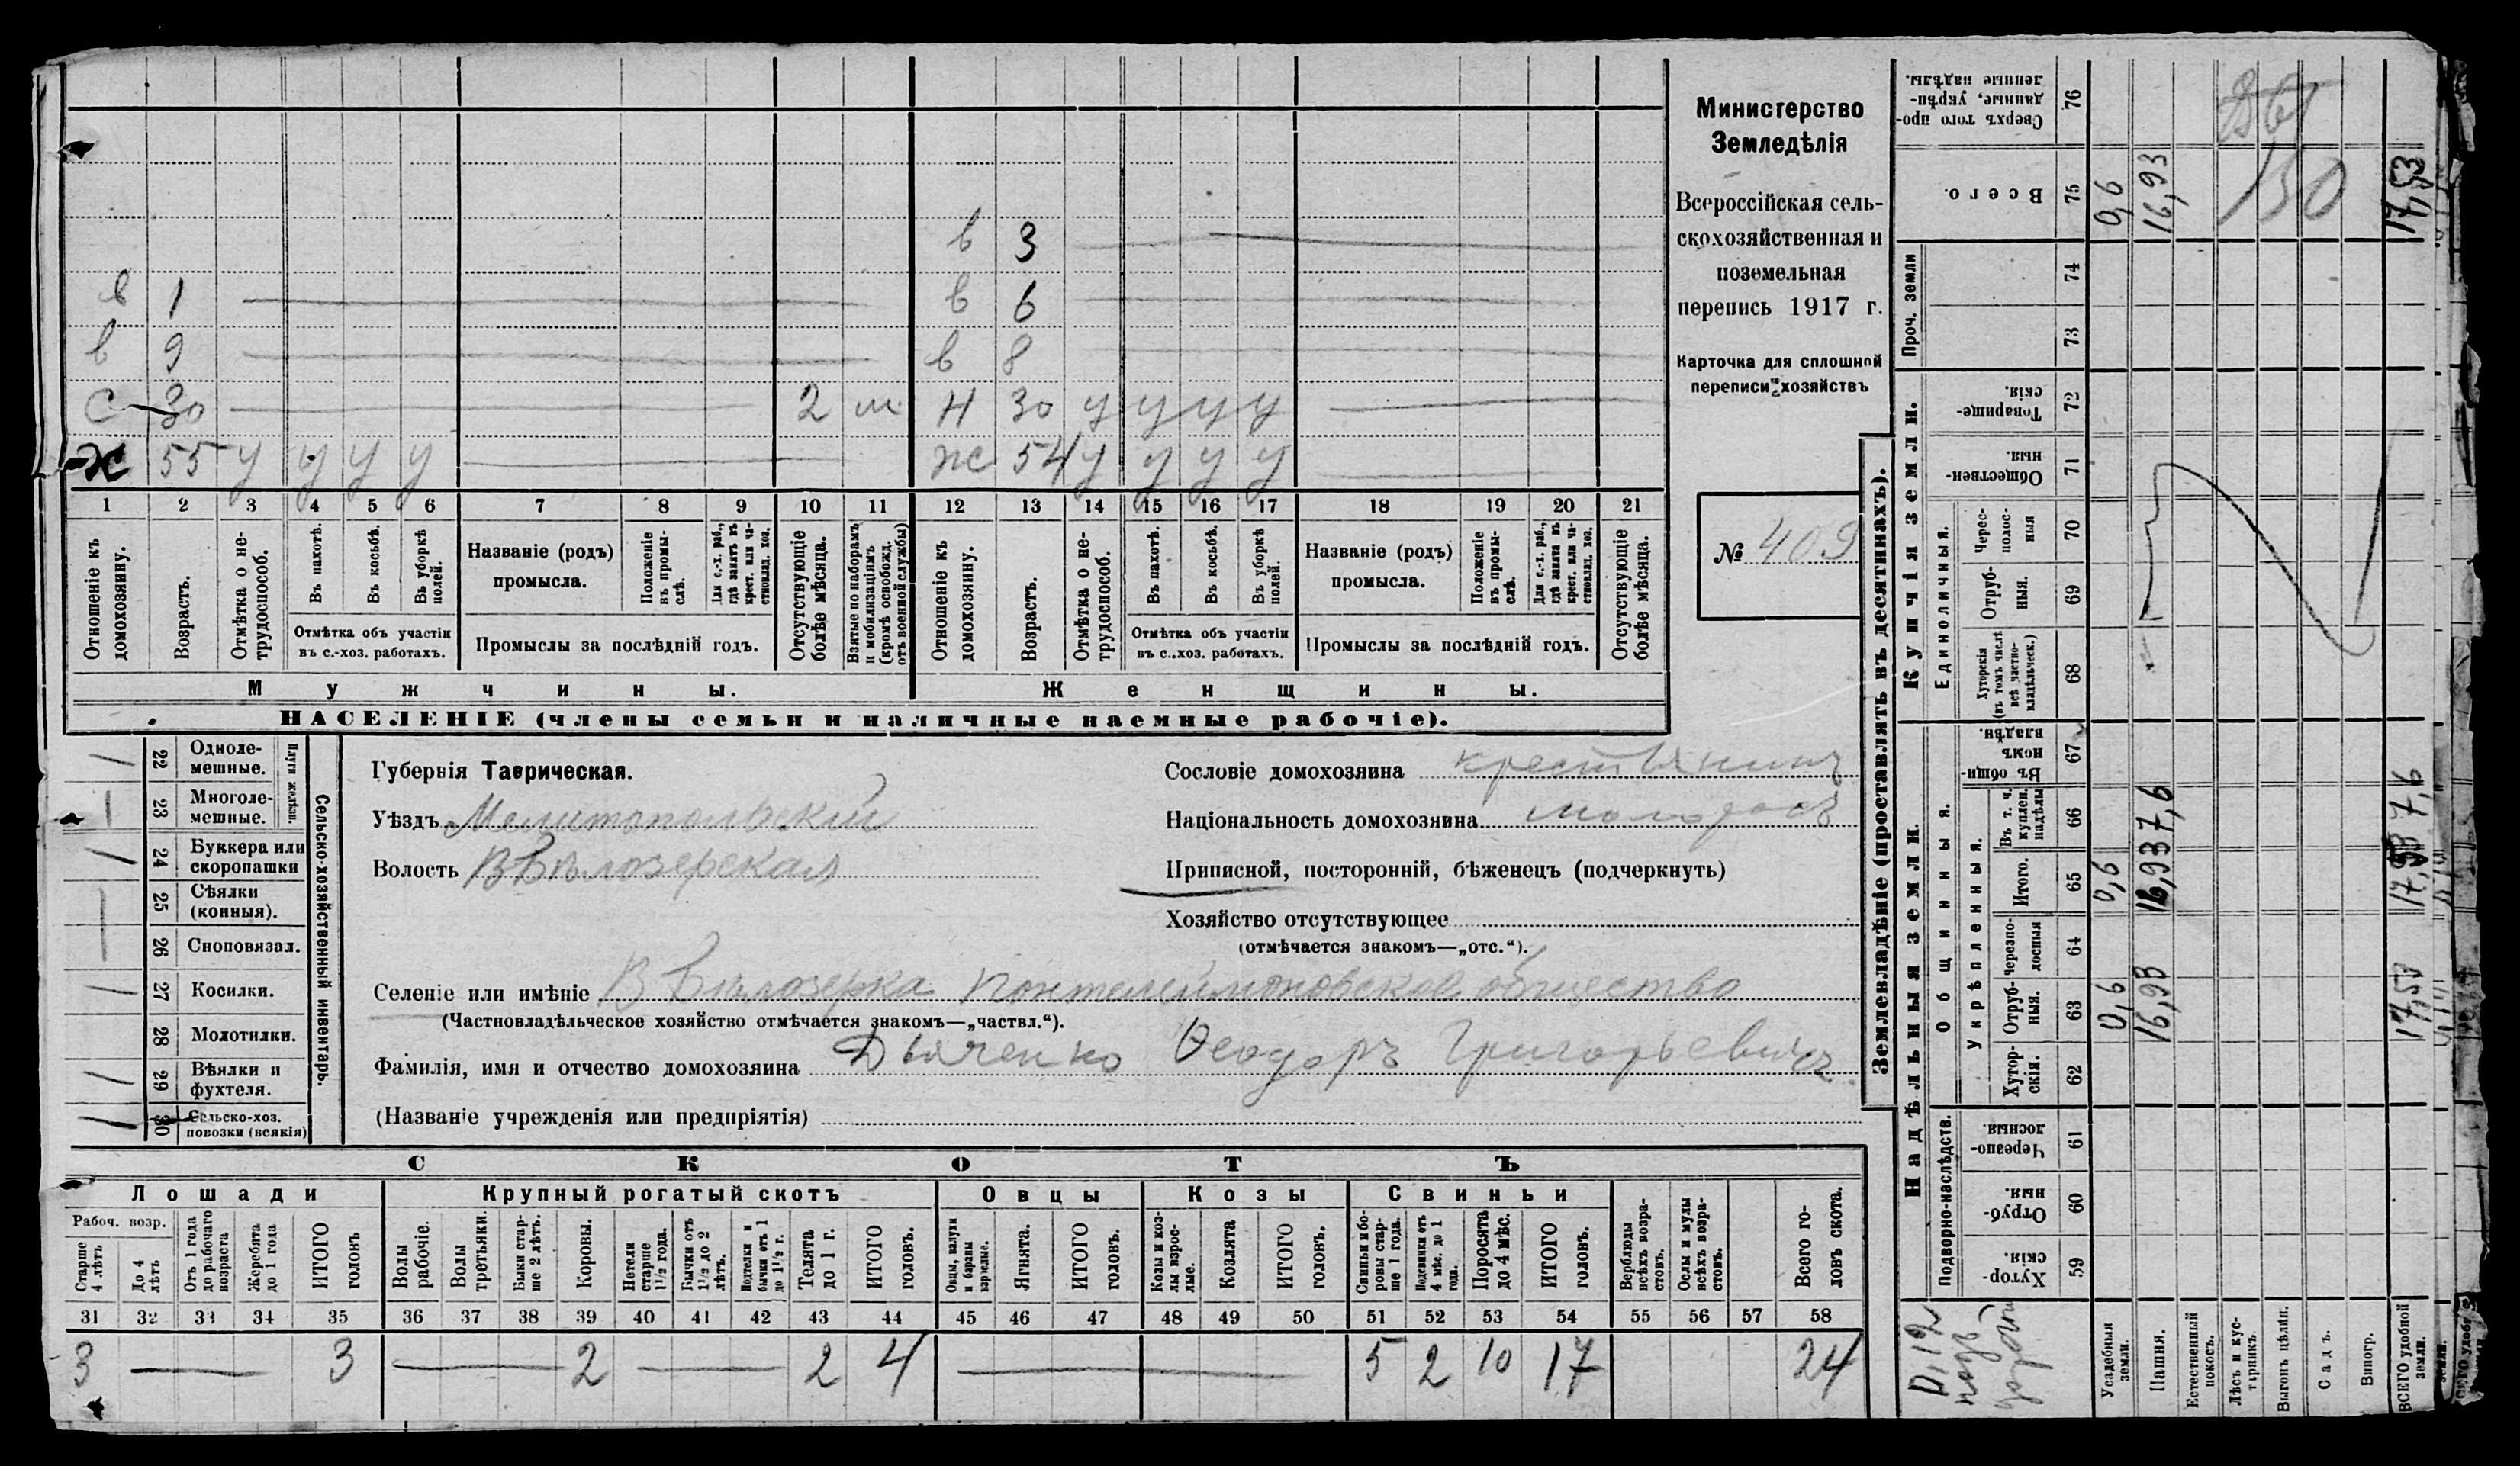 Министерство
Земледѣлія
Всероссійская сель-
скохозяйственная и
поземельная
перепись 1917 г.
Карточка для сплошной
переписи хозяйствъ
№ 409
в 3
в 1 в 6
в 9 в 8
с 30 2 м Н 30 у у у у
Ж 55 у у у у ж 54 у у у у
1 2 3 4 5 6 7 8 9 10 11 12 13 14 15 16 17 18 19 20 21
Отношеніе къ домохозяину.
Возрастъ.
Отмѣтка о не-трудоспособ.
Въ пахотѣ.
Въ косьбѣ.
Въ уборкѣ полей.
Отмѣтка объ участіи въ с.-хоз. работахъ.
Названіе (родъ) промысла.
Положеніе въ промы-слѣ.
Для с.-х. раб., гдѣ занятъ въ крест. или ча-стновлад. хоз.
Промыслы за послѣдній годъ.
Отсутствующіе болѣе мѣсяца.
Взятые по наборамъ и мобилизаціямъ (кромѣ освобожд. отъ военной службы)
Отношеніе къ домохозяину.
Возрастъ.
Отмѣтка о не-трудоспособ.
Въ пахотѣ.
Въ косьбѣ.
Въ уборкѣ полей.
Отмѣтка объ участіи въ с.-хоз. работахъ.
Названіе (родъ) промысла.
Положеніе въ промы-слѣ.
Для с.-х. раб., гдѣ занята въ крест. или ча-стновлад. хоз.
Промыслы за послѣдній годъ.
Отсутствующіе болѣе мѣсяца.
Мужчины. Женщины.
НАСЕЛЕНІЕ (члены семьи и наличные наемные рабочіе).
Сельско-хозяйственный инвентарь.
Плуги желѣзн.
22 Одноле-мешные.
1 23 Многоле-мешные.
24 Буккера или скоропашки
25 Сѣялки (конныя).
26 Сноповязал.
27 Косилки.
28 Молотилки.
29 Вѣялки и фухтеля.
30 Сельско-хоз. повозки (всякія)
Губернія Таврическая.
Уѣздъ Мелитопольскій
Волость В Бѣлозерская
Сословіе домохозяина крестьянинъ
Національность домохозяина малоросъ
Приписной, посторонній, бѣженецъ (подчеркнуть)
Хозяйство отсутствующее
(отмѣчается знакомъ—„отс.“).
Селеніе или имѣніе В Бѣлозерка Понтелеймоновское общество
(Частновладѣльческое хозяйство отмѣчается знакомъ—„частвл.“).
Фамилія, имя и отчество домохозяина Дьяченко Ѳеодоръ Григорьевичъ
(Названіе учрежденія или предпріятія)
СКОТЪ
Лошади Крупный рогатый скотъ Овцы Козы Свиньи
Рабоч. возр.
Старше 4 лѣтъ
До 4 лѣтъ
Отъ 1 года до рабочаго возраста
Жеребята до 1 года
ИТОГО головъ
Волы рабочіе.
Волы третьяки.
Быки стар-ше 2 лѣтъ.
Коровы.
Нетели старше 1½ года.
Бычки отъ 1½ до 2 лѣтъ.
Подтелки и бычки отъ 1 до 1½ г.
Телята до 1 г.
ИТОГО головъ.
Овцы, валухи и бараны взрослые.
Ягнята.
ИТОГО головъ.
Козы и коз-лы взрос-лые.
Козлята
ИТОГО головъ.
Свиньи и бо-ровы стар-ше 1 года.
Подсвинки отъ 4 мѣс. до 1 года.
Поросята до 4 мѣс.
ИТОГО головъ.
Верблюды всѣхъ возра-стовъ.
Ослы и мулы всѣхъ возра-стовъ.
Всего го-ловъ скота.
31 32 33 34 35 36 37 38 39 40 41 42 43 44 45 46 47 48 49 50 51 52 53 54 55 56 57 58
3 3 2 2 4 5 2 10 17 24
Землевладѣніе (проставлять въ десятинахъ).
Надѣльныя земли. Купчія земли. Проч. земли
Подворно-наслѣдств.
Общинныя.
Укрѣпленныя.
Единоличныя.
Хутор-скія. 59
Отруб-ныя. 60
Черезпо-лосныя. 61
Хутор-скія. 62
Отруб-ныя. 63
Черезпо-лосныя 64
Итого. 65
Въ т. ч. куплен. надѣлы 66
Въ общин-номъ владѣн. 67
Хуторскія (въ томъ числѣ всѣ частно-владѣльческ.) 68
Отруб-ныя. 69
Черес-полос-ныя 70
Обществен-ныя. 71
Товарище-скія. 72
73
74
Всего. 75
Сверхъ того про-данные, укрѣп-ленные надѣлы. 76
Усадебныя земли. 0,6 0,6 0,6
Пашня. 16,93 16,93 7,6 16,93
Естественный покосъ.
Лѣсъ и кус-тарникъ.
Выгонъ цѣлин.
Садъ.
Виногр.
ВСЕГО удобной земли. 17,53 17,53 7,6 17,53
130